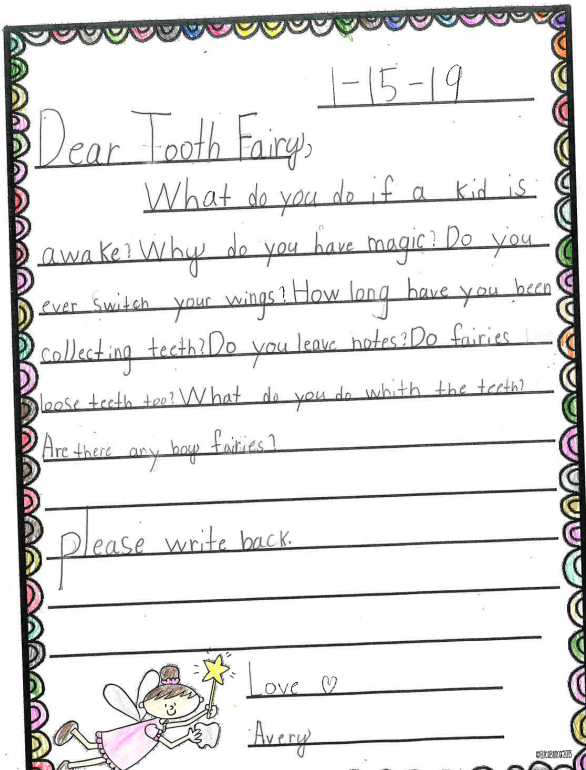 1-15-19
Dear Tooth Fairy,
What do you do if a kid is
awake? Why do you have magic? Do you
ever switch your wings? How long have you been
collecting teeth? Do you leave notes? Do fairies
loose teeth too? What do you do whith the teeth?
Are there any boy fairies?
please write back.
Love ♡
Avery